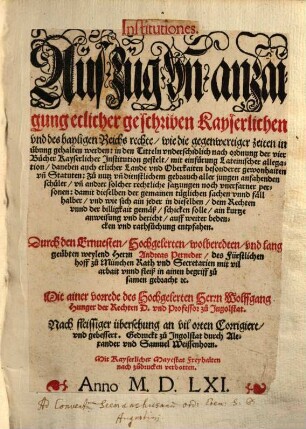 Institutiones.
Auszüg vñ anzai
gung etlicher geschriben Kayserlichen
vnd des hayligen Reichs rechte / wie die gegenwertiger zeiten in
übung gehalten werden: in den Titteln vnderschidlich nach ordnung der vier
Bücher Kayserlicher Institution gestelt / mit einfürung Lateinischer allega-
tion / daneben auch etlicher Lande vnd Oberkaiten besonderer gewonhaiten
vñ Statuten. zů nutz vñ dienstlichem gebrauch aller jungen anfahenden
schůler / vñ anderer solcher rechtliche satzungen noch vnerfarner per-
sonen: damit dieselben der gemainen täglichen sachen vnnd fäll
halber / vnd wie sich ain jeder in dieselben / dem Rechten
vnnd der billigkait gemäß / schicken solle / ain kurtze
anweisung vnd bericht / auff weiter beden-
cken vnd rathschlung entpfahen.
Durch den Ernuesten / Hochgelerten / wolberedten / vnd lang
geübten weylend Herrn Andreas Perneder / des Fürstlichen
hoff zů München Rath vnd Secretarien mit vil
arbait vnnd fleiß in ainen begriff zů
samen gebracht &c.
Mit ainer vorrede des Hochgelerten Herrn Wolffgang
Hunger der Rechten D. vnd Professor zů Ingolstat.
Nach fleissiger übersehung an vil orten Corrigiert
vnd gebessert. Gedruckt zů Ingolstat durch Ale-
xander vnd Samuel Weissenhorn.
Mit Kayserlicher Mayestat Freyhaiten
nach zůdrucken verbotten.
Anno M. D. LXI.
Ad Conventum ord. S.
Augustini